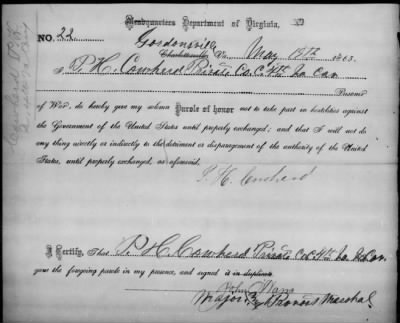 Headquarters Department of Virginia,
NO. 22
Gordonsville
Charlottesville Va May 19th 1865.
I P. H. Cowherd Private Co. C 4th Va Cav
Prisoner
of War, do hereby give my solemn Parole of honor not to take part in hostilities against
the Government of the United States until properly exchanged; and that I will not do
any thing directly or indirectly to the detriment or disparagement of the authority of the United
States, until properly exchanged, as aforesaid.
P. H. Cowherd
I Certify, That P. H. Cowherd Private Co. C 4th Va Cav
gave the foregoing parole in my presence, and signed it in duplicate
John
Major & Provost Marshal